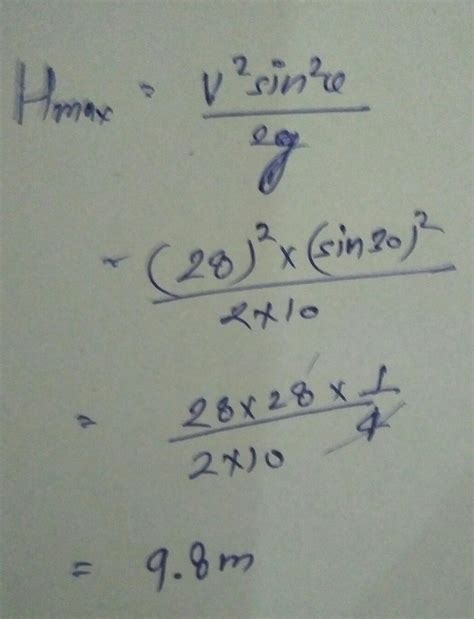 Hmax = V²sin²θ / 2g
= (28)² × (sin30)² / 2×10
= 28×28 / 2×10 × 1/4
= 9.8m